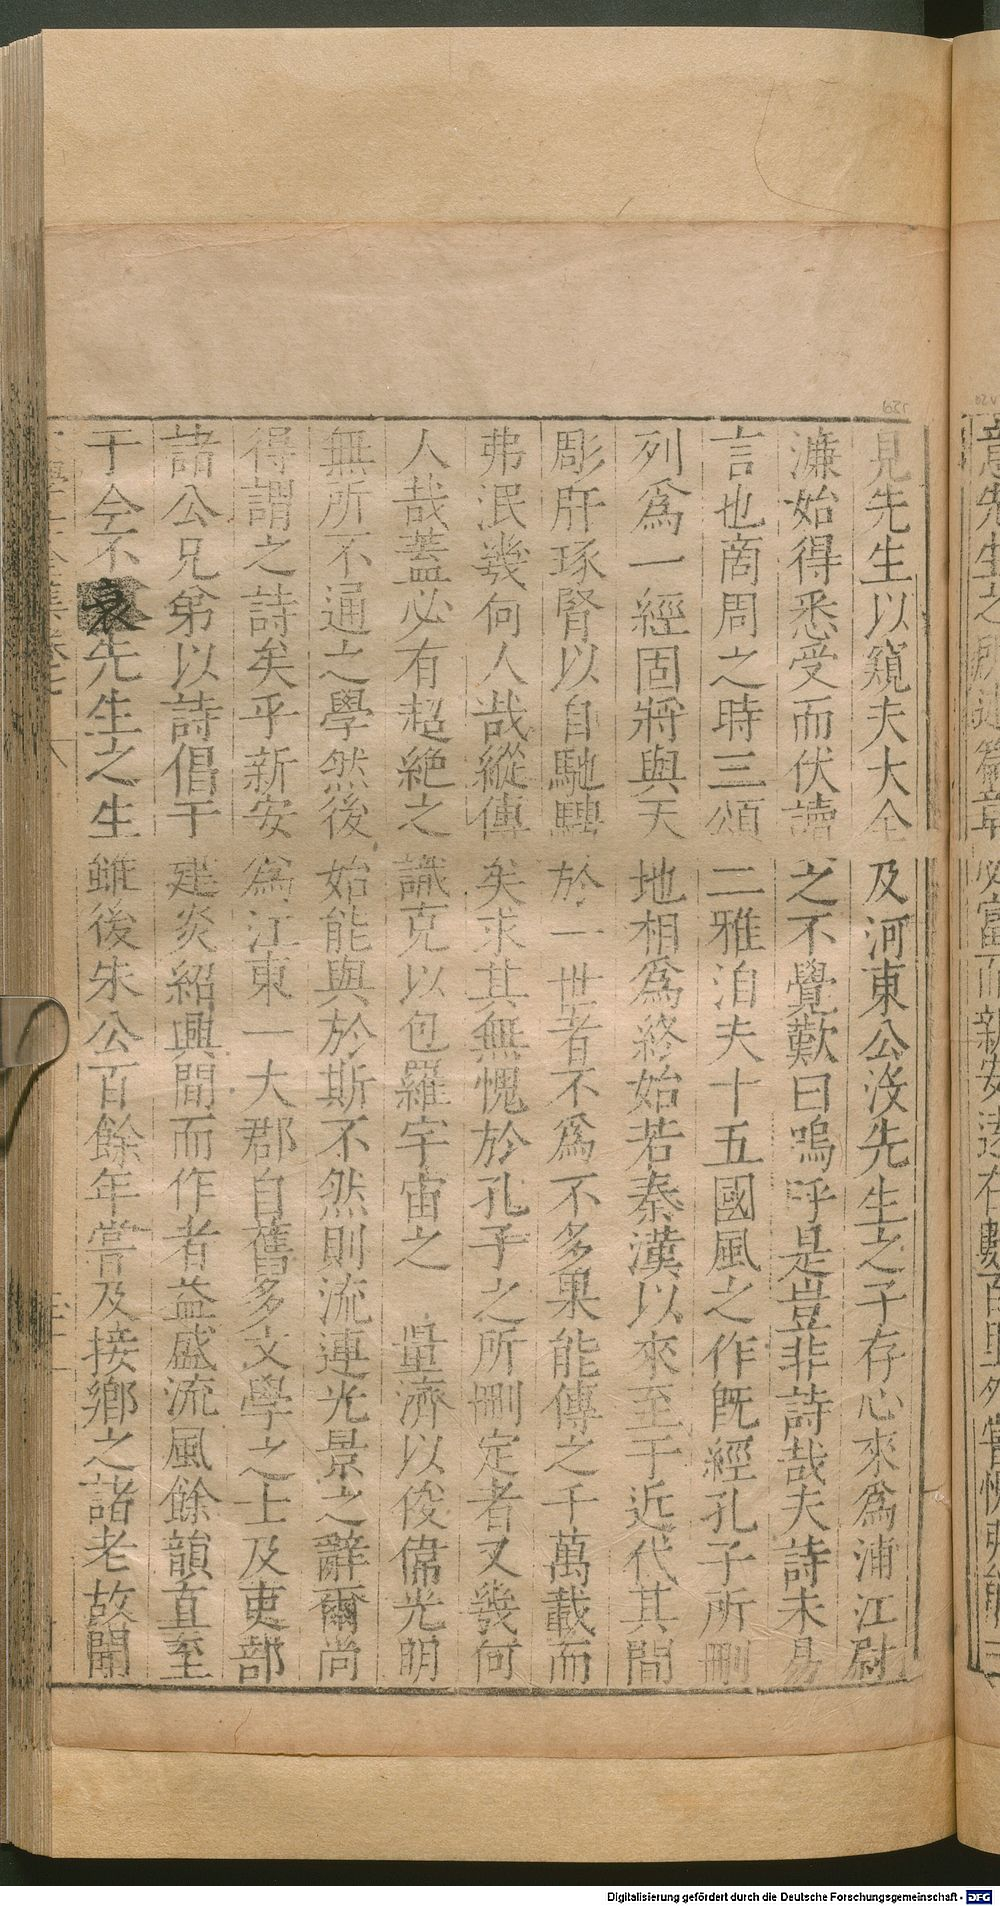 見先生以窺夫大全及河東公沒先生之子存心來爲浦江尉
濂始得悉受而伏讀之不覺歎曰嗚呼是豈非詩哉夫詩未易
言也商周之時三頌二雅洎夫十五國風之作旣經孔子所刪
列爲一經固將與天地相爲終始若秦漢以來至于近代其間
彫肝琢腎以自馳騁於一世者不爲不多果能傳之千萬載而
弗泯幾何人哉縱傳矣求其無愧於孔子之所刪定者又幾何
人哉蓋必有超絶之識克以包羅宇宙之量濟以俊偉光明
無所不通之學然後始能與於斯不然則流連光景之辭爾尚
得謂之詩矣乎新安爲江東一大郡自舊多文學之士及吏部
諸公兄弟以詩倡于建炎紹興間而作者益盛流風餘韻直至
于今不衰先生之生雖後朱公百餘年嘗及接鄉之諸老故聞
Digitalisierung gefördert durch die Deutsche Forschungsgemeinschaft - DFG